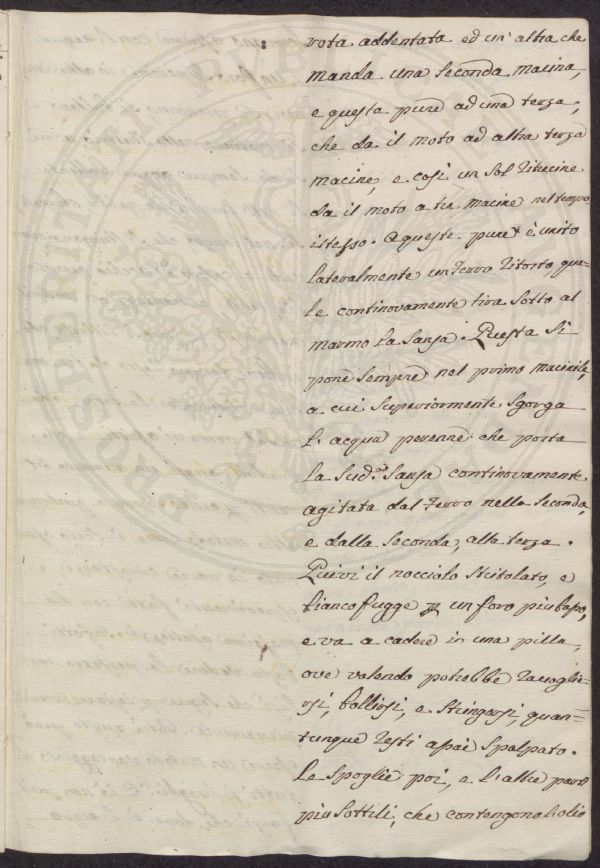 rota addentata ed un' altra che
manda una seconda macina,
e questa pure ad una terza,
che da il moto ad altra terza
macine, e così un sol Ritrecine
da il moto a tre macine nel tempo
istesso. A queste pure è unito
lateralmente un Ferro Ritorto, qua=
le continovamente tira sotto al
marmo la Sansa. Questa si
pone sempre nel primo macinile,
a cui superiormente sgorga
l'acqua perenne che porta
la sud.ª Sansa continovamente
agitata dal Ferro nella seconda,
e dalla seconda, alla terza.
Quivi il nocciolo stritolato, e
bianco fugge p un foro più basso,
e va a cadere in una pilla,
ove volendo potrebbe raccoglie=
rsi, bollirsi, e stringersi, quan=
tunque resti assai spolpato.
Le spoglie poi, e l'altre parti
più sottili, che contengono l'olio